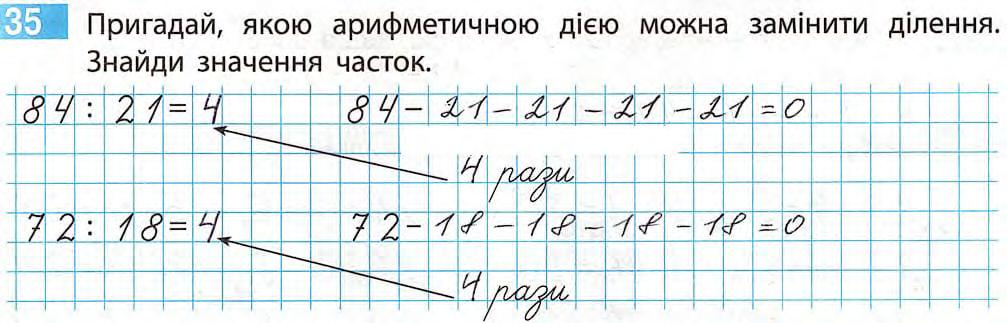 35 Пригадай, якою арифметичною дією можна замінити ділення.
Знайди значення часток.
84 : 21 = 4 84 - 21 - 21 - 21 - 21 = 0
4 рази
72 : 18 = 4 72 - 18 - 18 - 18 - 18 = 0
4 рази